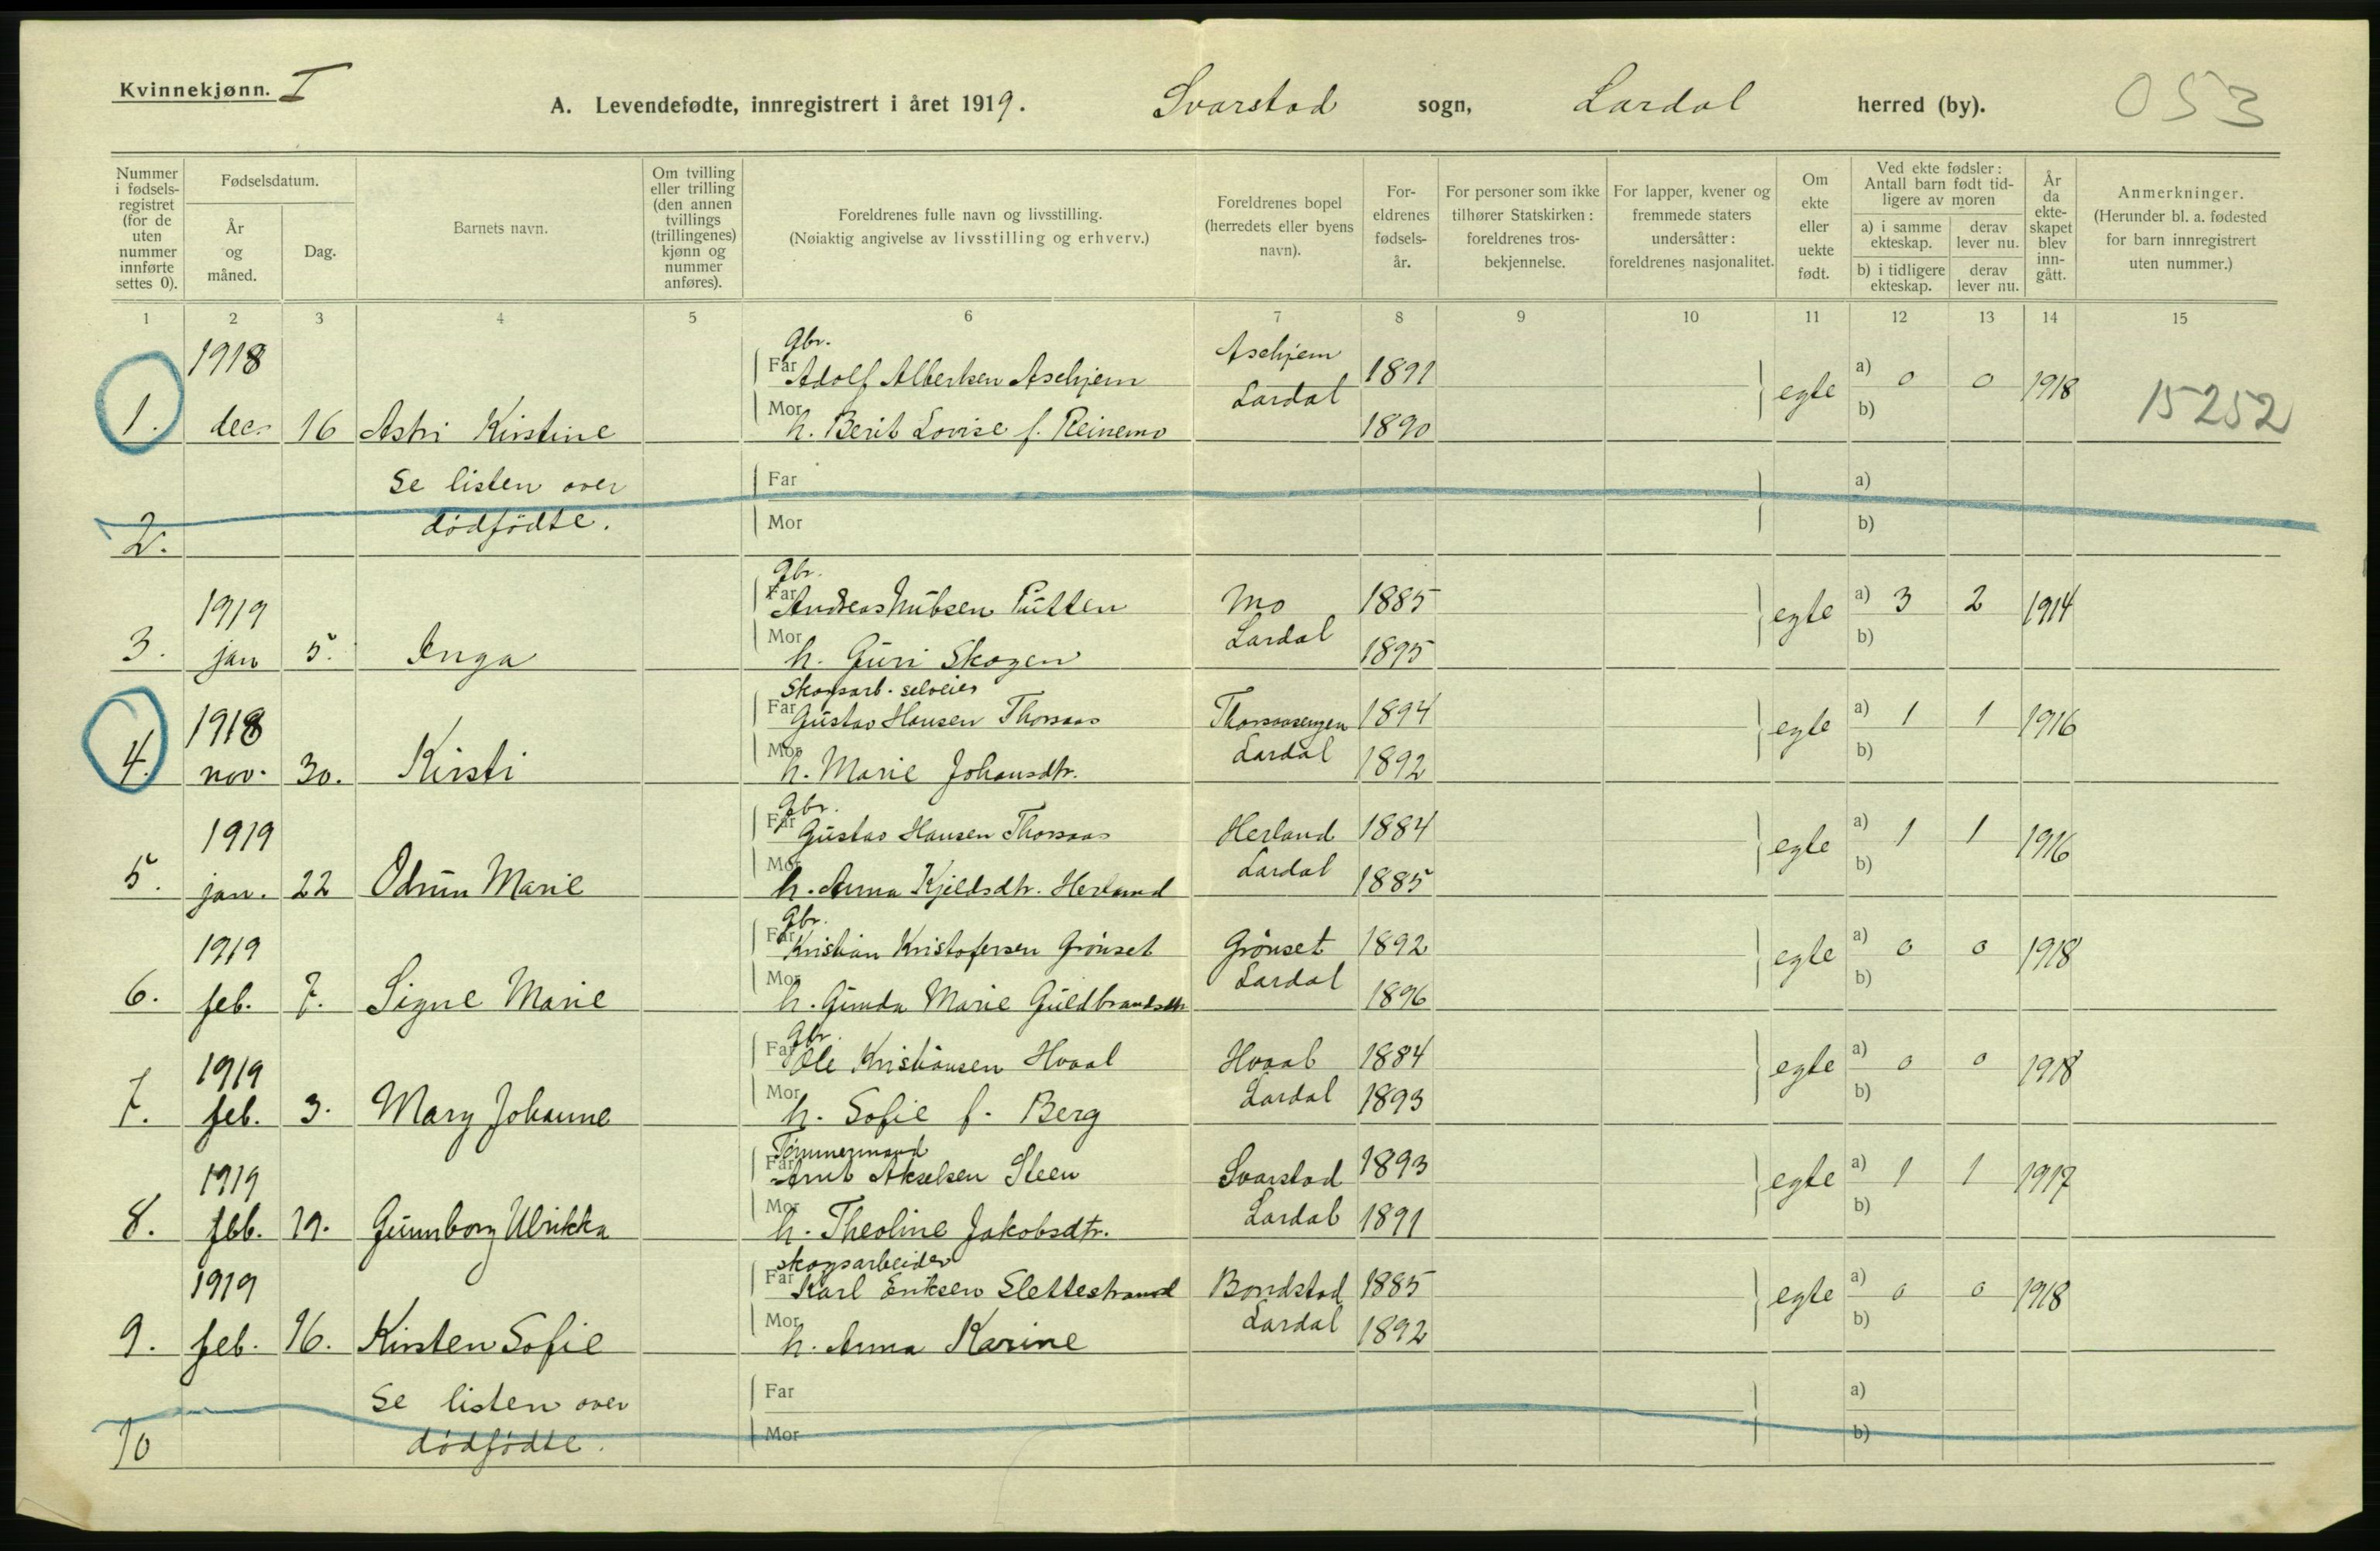 Kvinnekjønn. I
A. Levendefødte, innregistrert i året 1919. Svarstad sogn, Lardal herred (by). 053
Nummer i fødselsregistret (for de uten nummer innførte settes 0).
Fødselsdatum.
År og måned.
Dag.
Barnets navn.
Om tvilling eller trilling (den annen tvillings (trillingenes) kjønn og nummer anføres).
Foreldrenes fulle navn og livsstilling.
(Nøiaktig angivelse av livsstilling og erhverv.)
Foreldrenes bopel (herredets eller byens navn).
Foreldrenes fødselsår.
For personer som ikke tilhører Statskirken: foreldrenes trosbekjennelse.
For lapper, kvener og fremmede staters undersåtter: foreldrenes nasjonalitet.
Om ekte eller uekte født.
Ved ekte fødsler: Antall barn født tidligere av moren
a) i samme ekteskap.
derav lever nu.
b) i tidligere ekteskap.
derav lever nu.
År da ekteskapet blev inngått.
Anmerkninger.
(Herunder bl. a. fødested for barn innregistrert uten nummer.)
1 2 3 4 5 6 7 8 9 10 11 12 13 14 15
1918 Gbr. Aschjem
Far Adolf Albertsen Aschjem Lardal 1891 egte a) 0 0 1918 15252
1. dec. 16 Astri Kirstine Mor h. Berit Lovise f. Reinemo 1890 b)
Se listen over Far a)
2. dødfødte. Mor b)
Gbr.
1919 Far Andreas Nubsen Putten Mo 1885 egte a) 3 2 1914
3. jan 5. Inga Mor h. Guri Skogen Lardal 1895 b)
Skogsarb. selveier
1918 Far Gustav Hansen Thorsaas Thorsaasengen 1894 egte a) 1 1 1916
4. nov. 30. Kirsti Mor h. Marie Johansdtr. Lardal 1892 b)
Gbr.
1919 Far Gustav Hansen Thorsaas Herland 1884 egte a) 1 1 1916
5. jan. 22 Odrun Marie Mor h. Anna Kjeldsdtr. Herland Lardal 1885 b)
Gbr.
1919 Far Kristian Kristofersen Grønset Grønset 1892 egte a) 0 0 1918
6. feb. 7. Signe Marie Mor h. Gunda Marie Guldbrandsdtr Lardal 1896 b)
Gbr.
1919 Far Ole Kristiansen Hvaal Hvaal 1884 egte a) 0 0 1918
7. feb. 3. Mary Johanne Mor h. Sofie f. Berg Lardal 1893 b)
Tømmermand
1919 Far Arnt Akselsen Steen Svarstad 1893 egte a) 1 1 1917
8. feb. 19. Gunnborg Ulrikka Mor h. Theoline Jakobsdtr. Lardal 1891 b)
skogsarbeider
1919 Far Karl Eriksen Slettestrand Bondstad 1885 egte a) 0 0 1918
9. feb. 16. Kirsten Sofie Mor h. Anna Karine Lardal 1892 b)
Se listen over Far a)
10 dødfødte. Mor b)